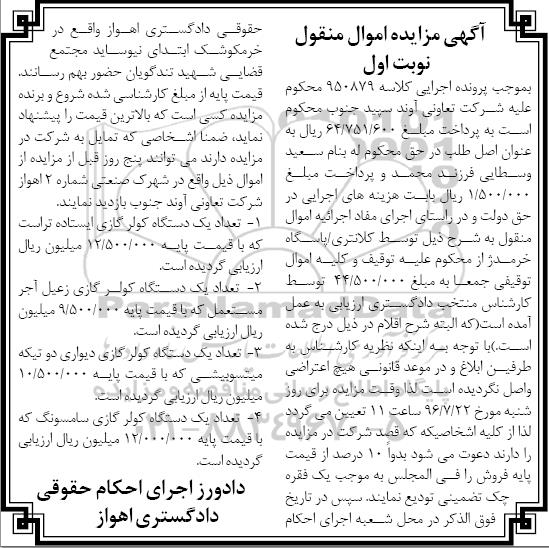 آگهی مزایده اموال منقول
نوبت اول
بموجب پرونده اجرایی کلاسه ۹۵۰۸۷۹ محکوم
علیه شرکت تعاونی آوند سپید جنوب محکوم
است به پرداخت مبلغ ۶۴/۷۵۱/۶۰۰ ریال به
عنوان اصل طلب در حق محکوم له بنام سعید
وسطایی فرزند محمد و پرداخت مبلغ
۱/۵۰۰/۰۰۰ ریال بابت هزینه های اجرایی در
حق دولت و در راستای اجرای مفاد اجرائیه اموال
منقول به شرح ذیل توسط کلانتری/پاسگاه
خرمدژ از محکوم علیه توقیف و کلیه اموال
توقیفی جمعا به مبلغ ۴۴/۵۰۰/۰۰۰ توسط
کارشناس منتخب دادگستری ارزیابی به عمل
آمده است(که البته شرح اقلام در ذیل درج شده
است.)با توجه به اینکه نظریه کارشناس به
طرفین ابلاغ و در موعد قانونی هیچ اعتراضی
واصل نگردیده است لذا وقت مزایده برای روز
شنبه مورخ ۹۶/۷/۲۲ ساعت ۱۱ تعیین می گردد
لذا از کلیه اشخاصیکه قصد شرکت در مزایده
را دارند دعوت می شود بدواً ۱۰ درصد از قیمت
پایه فروش را فی المجلس به موجب یک فقره
چک تضمینی تودیع نمایند. سپس در تاریخ
فوق الذکر در محل شعبه اجرای احکام
حقوقی دادگستری اهواز واقع در
خرمکوشک ابتدای نیوساید مجتمع
قضایی شهید تندگویان حضور بهم رسانند.
قیمت پایه از مبلغ کارشناسی شده شروع و برنده
مزایده کسی است که بالاترین قیمت را پیشنهاد
نماید، ضمنا اشخاصی که تمایل به شرکت در
مزایده دارند می توانند پنج روز قبل از مزایده از
اموال ذیل واقع در شهرک صنعتی شماره ۲ اهواز
شرکت تعاونی آوند جنوب بازدید نمایند.
۱- تعداد یک دستگاه کولر گازی ایستاده تراست
که با قیمت پایه ۱۲/۵۰۰/۰۰۰ میلیون ریال
ارزیابی گردیده است.
۲- تعداد یک دستگاه کولر گازی زعیل آجر
مستعمل که با قیمت پایه ۹/۵۰۰/۰۰۰ میلیون
ریال ارزیابی گردیده است.
۳- تعداد یک دستگاه کولر گازی دیواری دو تیکه
میتسوبیشی که با قیمت پایه ۱۰/۵۰۰/۰۰۰
میلیون ریال ارزیابی گردیده است.
۴- تعداد یک دستگاه کولر گازی سامسونگ که
با قیمت پایه ۱۲/۰۰۰/۰۰۰ میلیون ریال ارزیابی
گردیده است.
دادورز اجرای احکام حقوقی
دادگستری اهواز
ParsNamadData